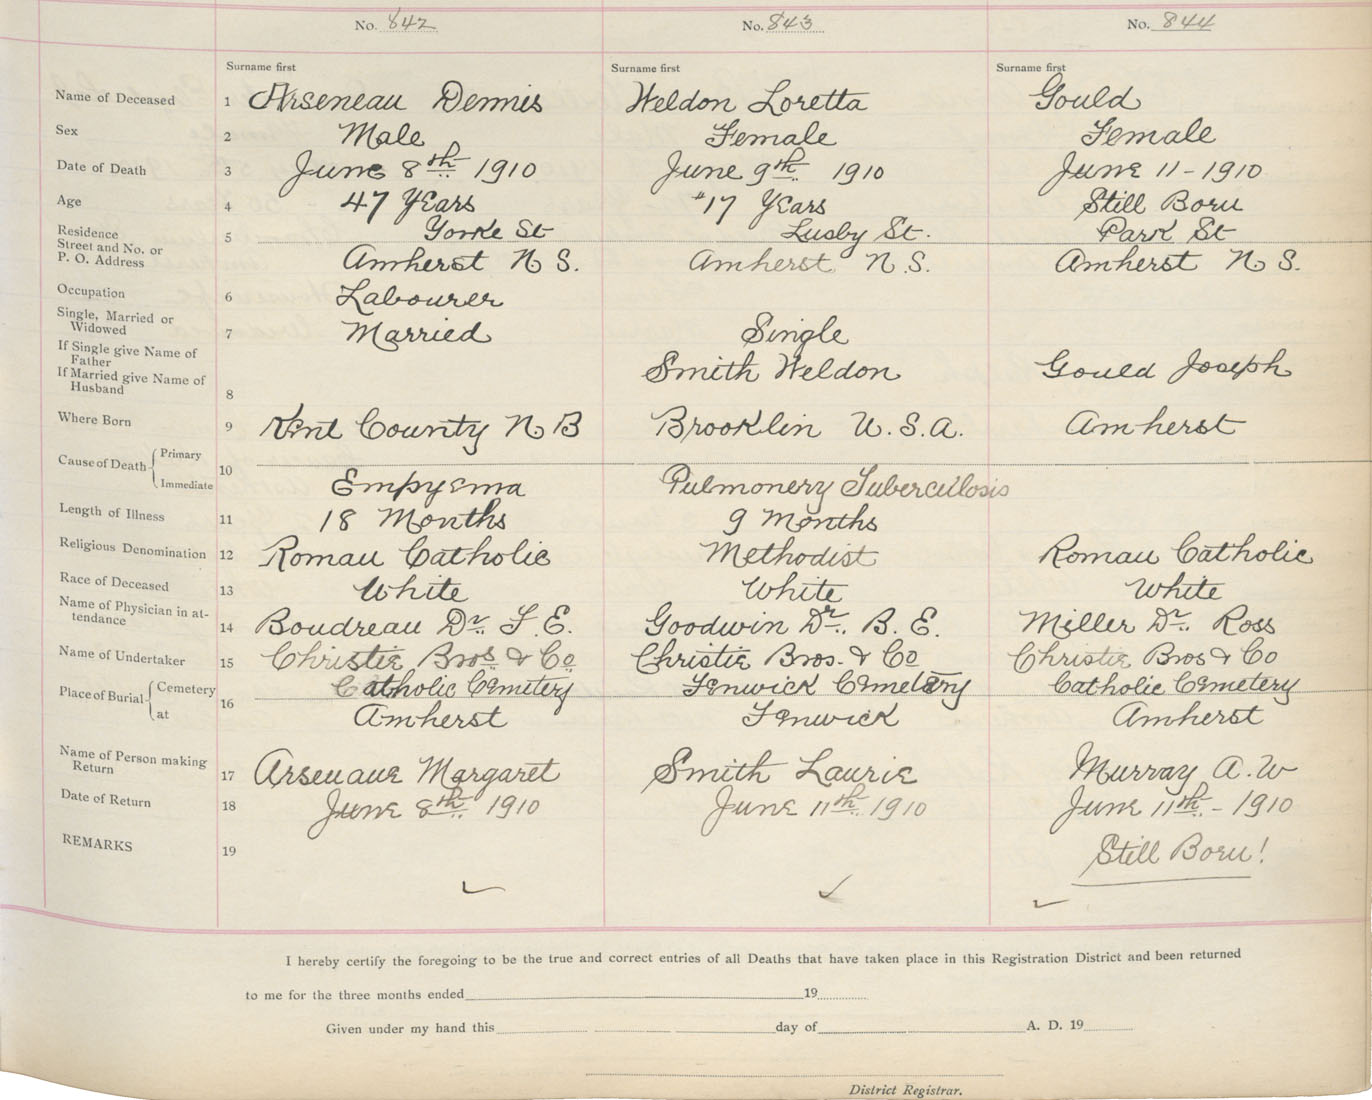 No. 842 No. 843 No. 844
Surname first Surname first Surname first
Name of Deceased 1 Arseneau Dennis Weldon Loretta Gould
Sex 2 Male Female Female
Date of Death 3 June 8th 1910 June 9th 1910 June 11 - 1910
Age 4 47 Years 17 Years Still Born
Residence Yorke St Lusby St. Park St
Street and No. or 5
P. O. Address Amherst N S. Amherst N.S. Amherst N S.
Occupation 6 Labourer
Single, Married or
Widowed 7 Married Single
If Single give Name of
Father Smith Weldon Gould Joseph
If Married give Name of
Husband 8
Where Born 9 Kent County N B Brooklin U.S.A. Amherst
Cause of Death { Primary 10
Immediate Empyema Pulmonery Tuberculosis
Length of Illness 11 18 Months 9 Months
Religious Denomination 12 Roman Catholic Methodist Roman Catholic
Race of Deceased 13 White White White
Name of Physician in at-
tendance 14 Boudreau Dr. F. E. Goodwin Dr. B. E. Miller Dr. Ross
Name of Undertaker 15 Christie Bros & Co Christie Bros. & Co Christie Bros & Co
Place of Burial { Cemetery Catholic Cemetery Fenwick Cemetery Catholic Cemetery
at 16 Amherst Fenwick Amherst
Name of Person making
Return 17 Arsenaue Margaret Smith Laurie Murray A. W
Date of Return 18 June 8th 1910 June 11th 1910 June 11th - 1910
REMARKS 19 Still Born!
I hereby certify the foregoing to be the true and correct entries of all Deaths that have taken place in this Registration District and been returned
to me for the three months ended 19
Given under my hand this day of A. D. 19
District Registrar.